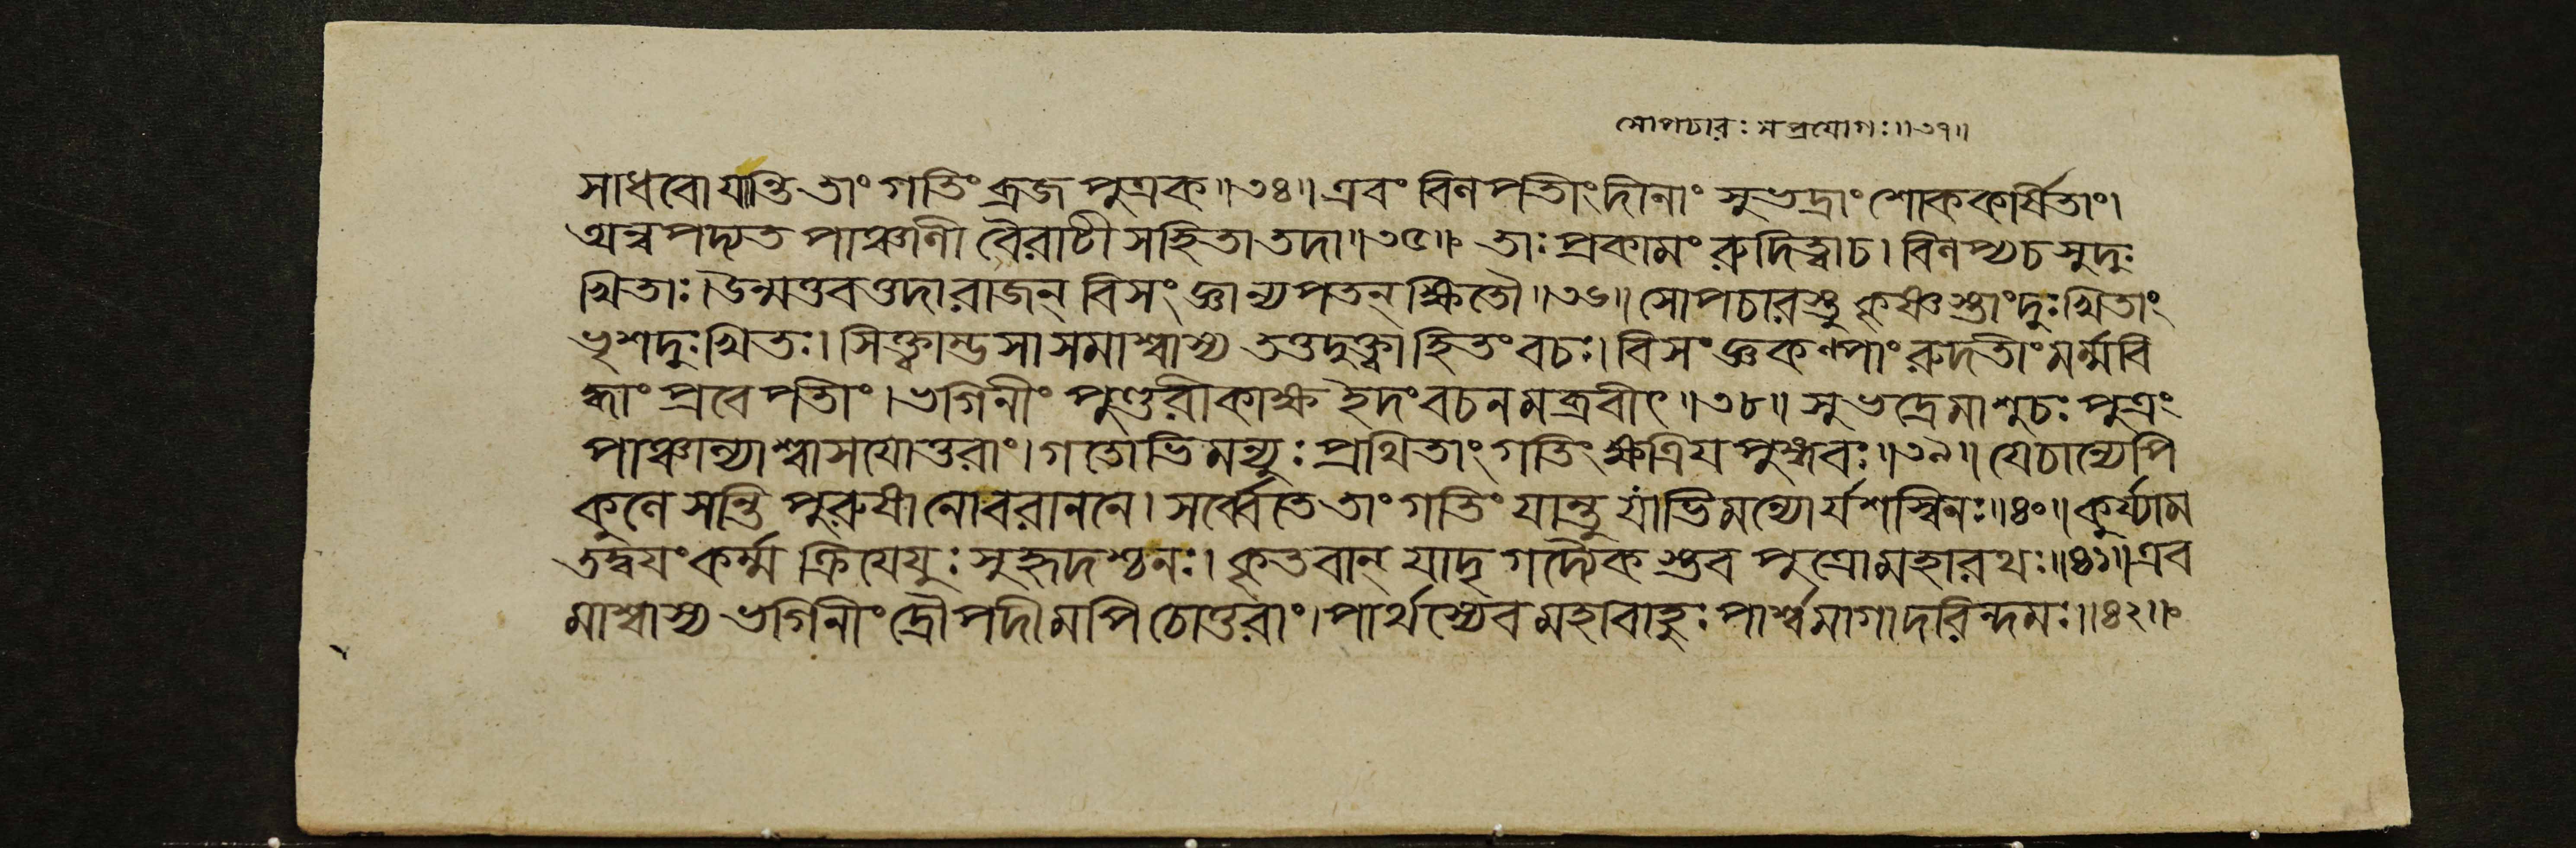 সোপচারঃ সপ্রযোগঃ॥৩৭॥
সাধবোযান্তি তাং গতিং ব্রজ পুত্রক॥৩৪॥ এবং বিলপতীং দীনাং সুভদ্রাং শোককর্ষিতাং।
অন্বপদ্যত পাঞ্চালী বৈরাটী সহিতা তদা॥৩৫॥ তাঃ প্রকামং রুদিত্বা চ। বিলপ্য চ সুদুঃ
খিতাঃ। উন্মত্তবত্তদা রাজন্ বিসংজ্ঞা ন্যপতন্ ক্ষিতৌ॥৩৬॥ সোপচারস্তু কৃষ্ণস্তাং দুঃখিতাং
ভৃশদুঃখিতঃ। সিক্ত্বাম্ভসা সমাশ্বাস্য তত্তদুক্ত্বা হিতং বচঃ। বিসংজ্ঞকল্পাং রুদতীং মর্ম্মবি
দ্ধাং প্রবেপতীং। ভগিনীং পুণ্ডরীকাক্ষ ইদং বচনমব্রবীৎ॥৩৮॥ সুভদ্রে মা শুচঃ পুত্রং
পাঞ্চাল্যাশ্বাসযোত্তরাং। গতোভিমন্যুঃ প্রথিতাং গতিং ক্ষত্রিয পুঙ্গবঃ॥৩৯॥ যে চান্যেপি
কুলে সন্তি পুরুষা নো বরাননে। সর্ব্বে তে তাং গতিং যান্তু যাভিমন্যোর্যশস্বিনঃ॥৪০॥ কুর্য্যাম
তদ্বযং কর্ম্ম ক্রিযেযুঃ সুহৃদশ্চনঃ। কৃতবান্ যাদৃগদ্যৈকস্তব পুত্রো মহারথঃ॥৪১॥ এব
মাশ্বাস্য ভগিনীং দ্রৌপদীমপি চোত্তরাং। পার্থস্যৈব মহাবাহুঃ পার্শ্বমাগাদরিন্দমঃ॥৪২॥